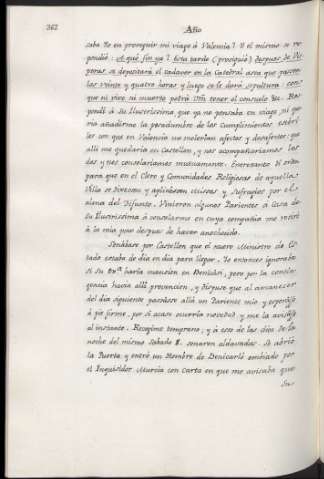 362
Año
saba Yo en proseguir mi viage á Valencia? Y el mismo se re-
pondió: A qué fin ya? Esta tarde (prosiguió) despues de Vis-
peras se depositará el cadaver en la Catedral asta que pasen
las veinte y quatro horas y luego se le dará sepultura: con
que ni vivo ni muerto podrá Vm tener el consuelo &c. Res-
pondí á Su Ilustrissima que ya no pensaba en viage, ni que-
ria añadirme la pesadumbre de los Cumplimientos estéri-
les con que en Valencia me molerian afectos y desafectos: que
allí me quedaria en Castellon, y nos acompañariamos los
dos y nos consolariamos mutuamente. Entretanto dí orden
para que en el Clero y Comunidades Religiosas de aquella
Villa se dixeran y aplicasen Missas y Sufragios por el
alma del Difunto. Vinieron algunos Parientes á casa de
Su Ilustrissima á consolarme en cuya compañia me retiré
á la mia poco despues de haver anochecido.
Sonábase por Castellon que el nuevo Ministro de Es-
tado estaba de dia en dia para llegar. Yo entonces ignoraba
si Su Exª. haria mansion en Benicasi, pero por la conse-
quencia havia allí prevencion, y dispuse que al amanecer
del dia siguiente passase allá un Pariente mio y esperasse
á pie firme, por si acaso ocurria novedad y me la avisasse
al instante. Recogime temprano, y á eso de las diez de la
noche del mismo Sabado 8. sonaron aldavadas. Se abrió
la Puerta y entró un Hombre de Benicarló embiado por
el Inquisidor Murcia con Carta en que me avisaba que